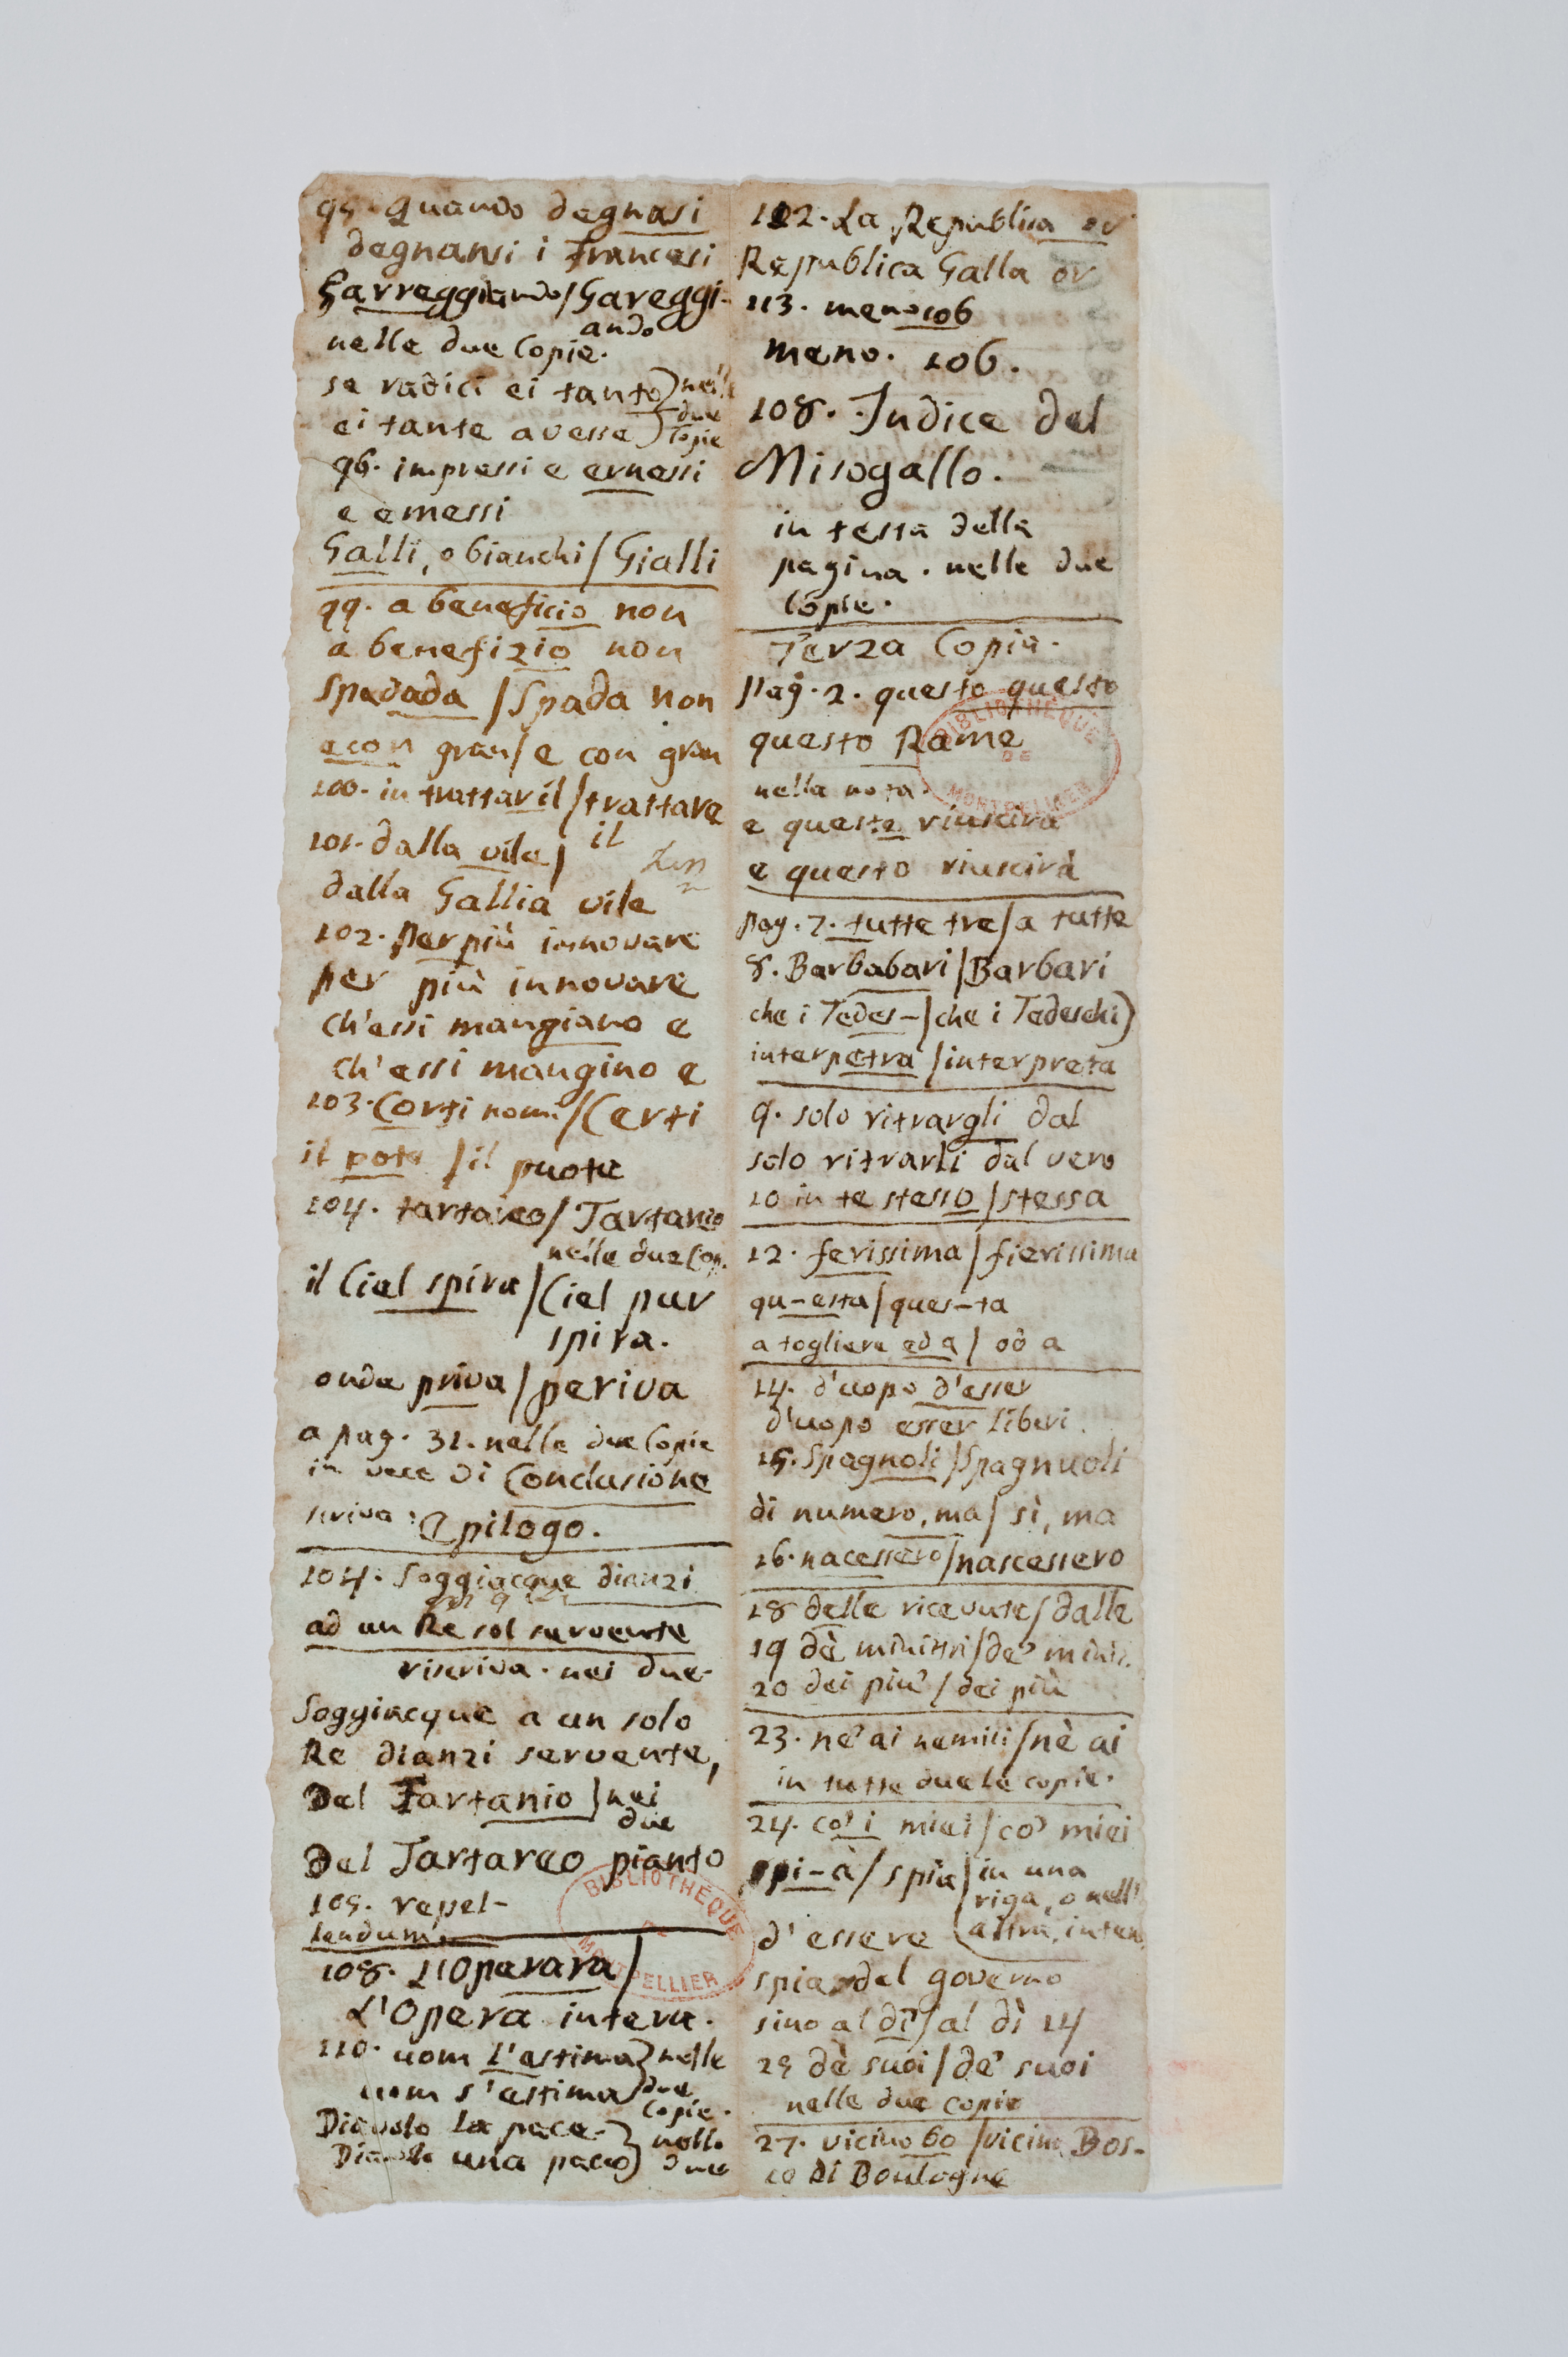 95. Quando degnasi
degnansi i Francesi
Garreggiando / Gareggi-
ando
nelle due Copie.
se radici ei tanto) nelle
due
ei tante avesse) Copie
96. impressi e ernessi
e emessi
Galli, o bianchi / Gialli
99. a beneficio non
a benefizio non
Spadada / Spada non
econ gran / e con gran
100. in trattar il / trattare
il
101. dalla vile /
dalla Gallia vile
102. Perpiù innovare
per più innovare
ch'essi mangiano e
ch'essi mangino e
103. Corti nomi / Certi
il pote / il puote
104. tartareo / Tartareo
nelle due Cop.
il Ciel spira / Ciel pur
spira.
onde priva / periva
a pag. 31. nelle due Copie
in vece di Conclusione
scriva: Epilogo.
104. Soggiacque dianzi
ad un Re sol servente
riscriva. nei due.
Soggiacque a un solo
Re dianzi servente,
Del Tartanio / nei
due
Del Tartareo pianto
105. repel-
lendum.
108. L'Operara /
L'Opera intera.
110. uom l'estima } nelle
uom s'estima } due
Copie.
Diavolo la pace- } nelle
Diavolo una pace } due
112. La Republica or
Republica Galla or
113. meno106
meno. 106.
108. Indice del
Misogallo.
in testa della
pagina. nelle due
Copie.
Terza Copia.
pag. 2. questo questo
questo Rame
nella nota.
e queste riuscirà
e questo riuscirà
pag. 7. tutte tre / a tutte
8. Barbabari / Barbari
che i Tedes- / che i Tedeschi)
interpetra / interpreta
9. solo ritrargli dal
solo ritrarli dal vero
10 in te stesso / stessa
12. ferissima / fierissima
qu-esta / ques-ta
a togliere ed a / od a
14. d'uopo d'esser
d'uopo esser liberi.
15. Spagnoli / Spagnuoli
di numero, ma / sì, ma
16. nacessero / nascessero
18 delle ricevute / dalle
19 dè ministri / de' minis.
20 dei piu' / dei più
23. ne' ai nemici / nè ai
in tutte due le copie.
24. co' i miei / co' miei
spi-a / spia / in una
riga, o nell'
d'essere altra, intera
spia del governo
sino al di' / al dì 14
25 dè suoi / de' suoi
nelle due copie
27. vicino bo / vicino Bos-
co di Boulogne
BIBLIOTHEQUE
DE
MONTPELLIER
BIBLIOTHEQUE
DE
MONTPELLIER